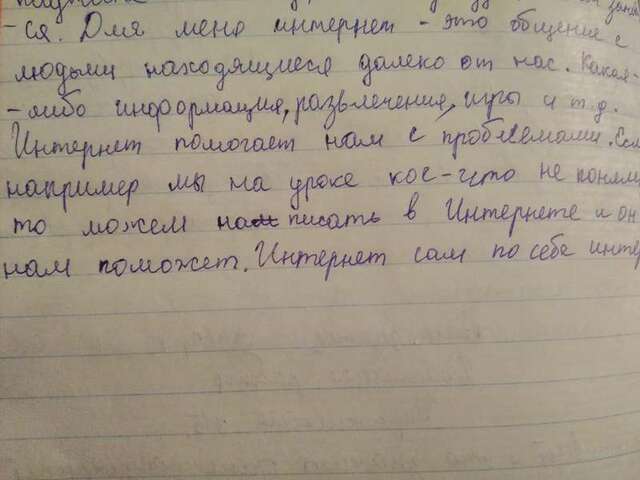 -ся. Для меня интернет - это общение с
людьми находящиеся далеко от нас. Какая-
-либо информация, развлечения, игры и т.д.
Интернет помогает нам с проблемами. Есл
например мы на уроке кое-что не поняли
то можем написать в Интернете и он
нам поможет. Интернет сам по себе инте